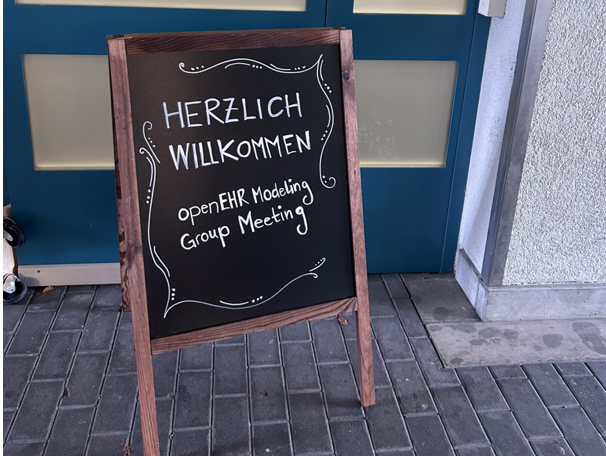 HERZLICH
WILLKOMMEN
openEHR Modeling
Group Meeting